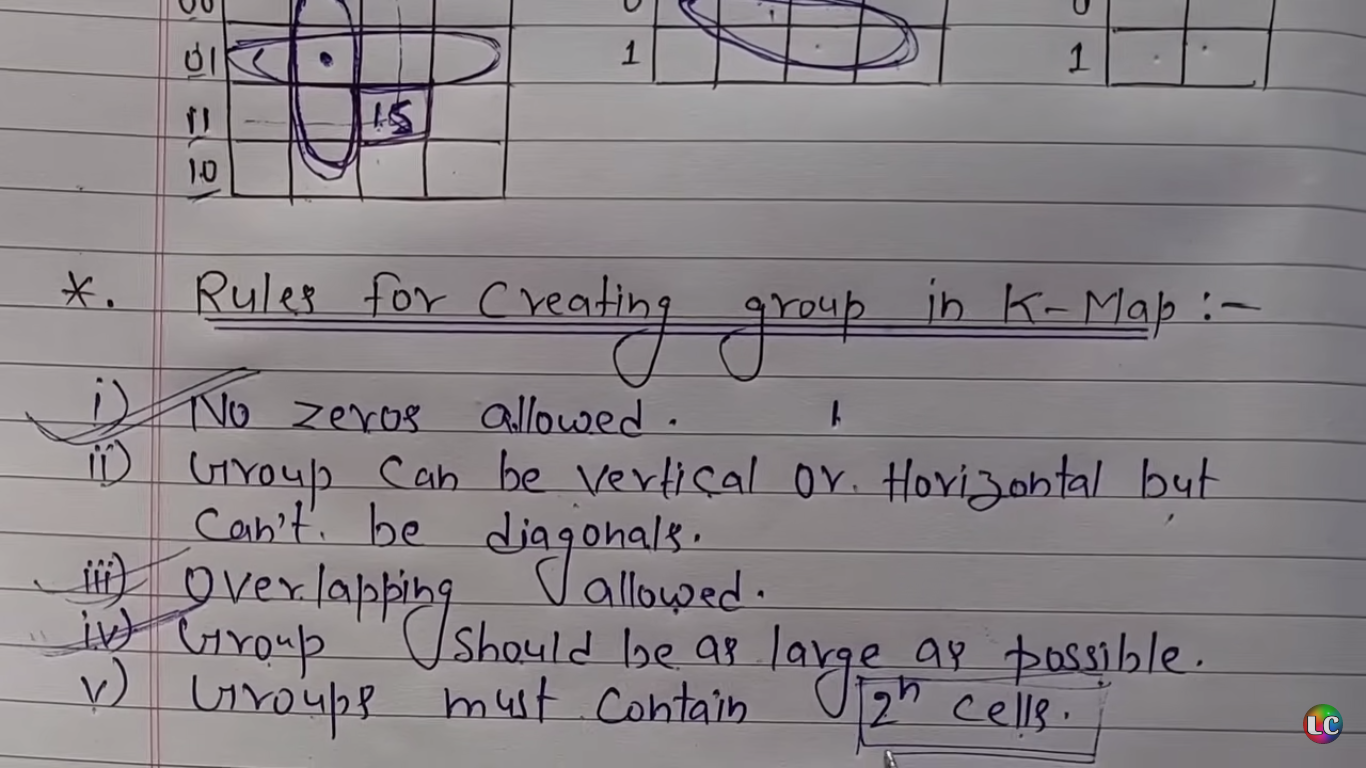 00
01
11 15
10
0
1
0
1
*. Rules for Creating group in K-Map :-
i) No zeros allowed.
ii) Group can be vertical or Horizontal but
can't be diagonals.
iii) Overlapping allowed.
iv) Group should be as large as possible.
v) Groups must contain 2ⁿ cells.
LC